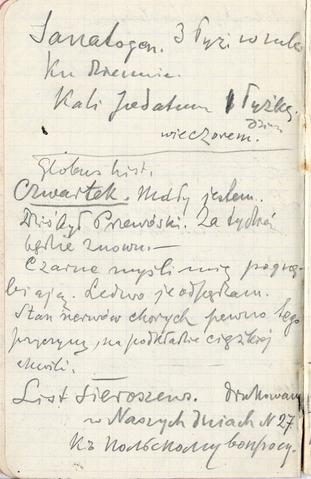 Sanatogen. 3 łyżi w mleku
ku dziennie.
Kali Jodatum 1 łyżkę
dzien
wieczorem.
Globus hist.
Czwartek. Mdły jestem.
Dziś był Przewóski. Za tydzień
będzie znowu.—
Czarne myśli mię pognę-
biają. Ledwo je odpędzam.
Stan nerwów chorych pewno tego
przyczyną, na podkładzie ciężkiej
chwili.
List Sieroszews. drukowany
w Naszych dniach N 27
Къ польскому вопросу.